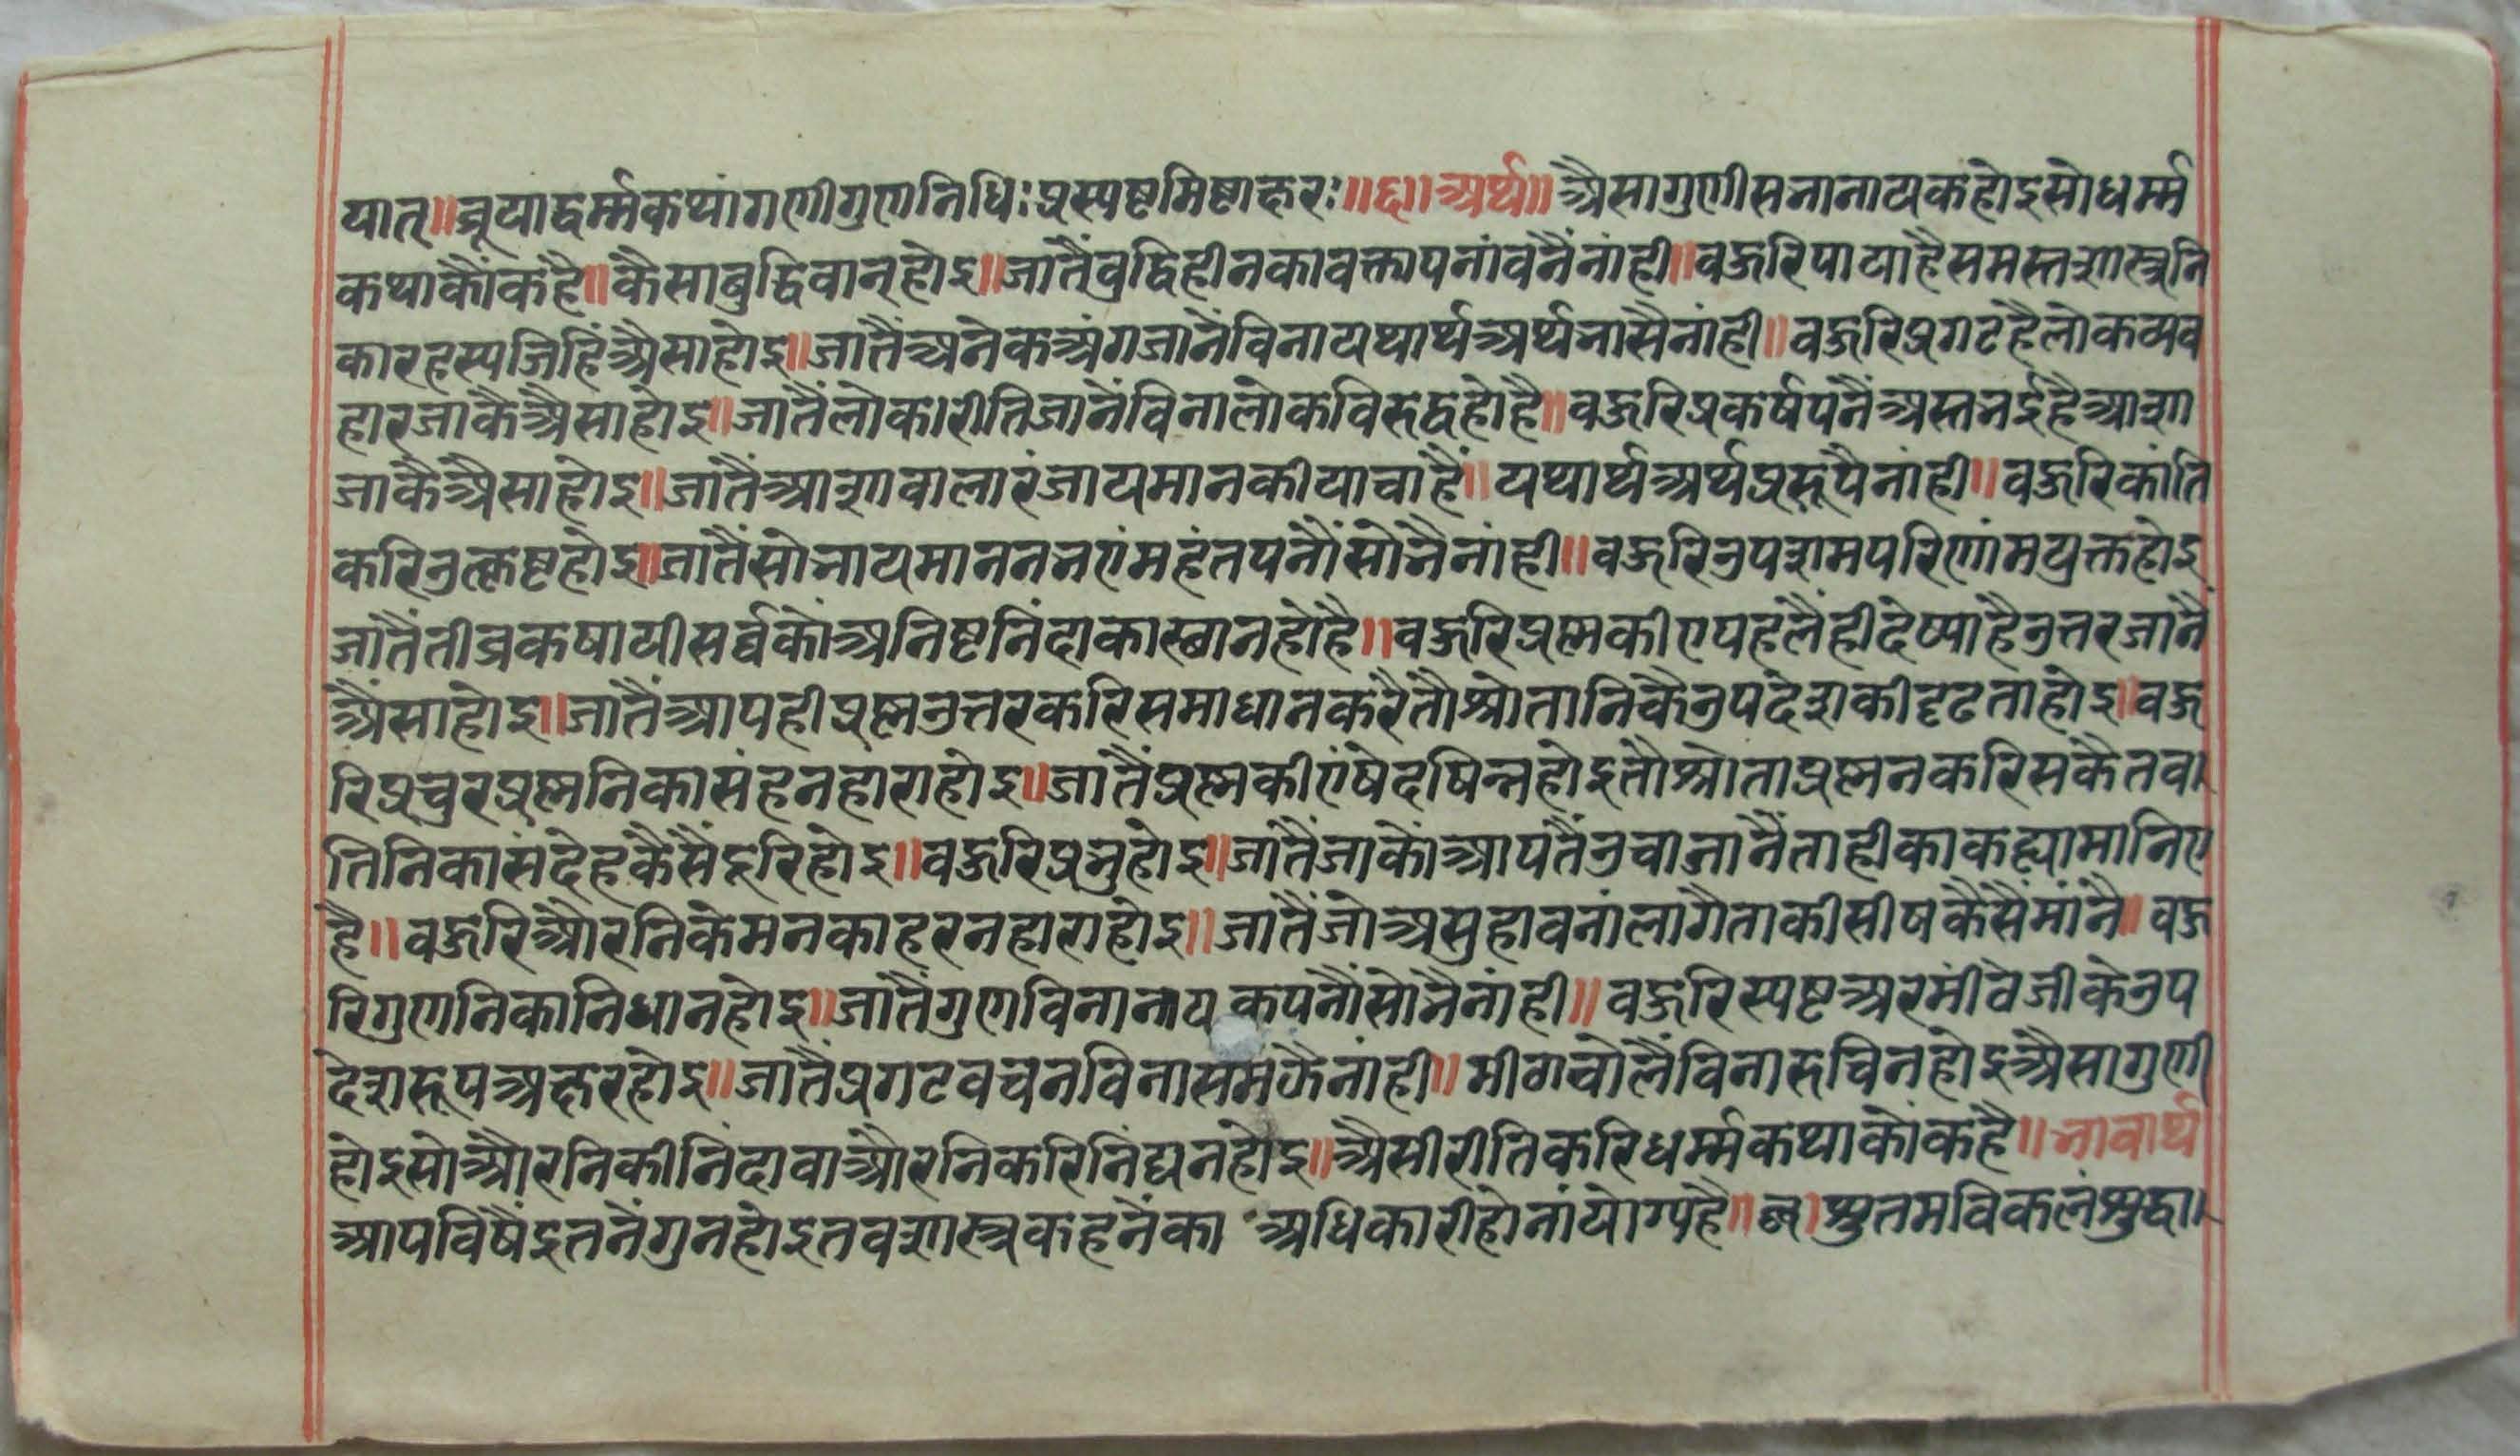 यात्॥ ब्रूयाद्धर्म्मकथां गणी गुणनिधिः प्रस्पष्टमिष्टाक्षरः॥छ॥ अर्थ॥ अैसा गुणी सभानायक होइ सो धर्म्म
कथाकौं कहै॥ कैसा बुद्धिवान् होइ॥ जातैं बुद्धिहीनका वक्तापनां बनैं नांही॥ बहुरि पाया है समस्त शास्त्रनि
का रहस्य जिहिं अैसा होइ॥ जातैं अनेक अंग जानें विना यथार्थ अर्थ भासै नांही॥ बहुरि प्रगट है लोकव्यव
हार जाकै अैसा होइ॥ जातैं लोकारीति जानें विना लोकविरुद्ध हो है॥ बहुरि प्रकर्षपनैं अस्त भई है आशा
जाकै अैसा होइ॥ जातैं आशावाला रंजायमान कीया चाहैं॥ यथार्थ अर्थ प्ररूपै नांही॥ बहुरि कांति
करि उत्कृष्ट होइ॥ जातैं सोभायमान न भएं महंतपनौं सोभै नांही॥ बहुरि उपशम परिणांम युक्त होइ
जातैं तीव्रकषायी सर्व्वकों अनिष्ट निंदाका स्थान हो है॥ बहुरि प्रश्न कीए पहलैं ही देष्या है उत्तर जानैं
अैंसा होइ॥ जातैं आप ही प्रश्न उत्तर करि समाधान करै तौ श्रोतानिकै उपदेशकी दृढता होइ॥ बहु
रि प्रचुर प्रश्ननिका संहनहारा होइ॥ जातैं प्रश्न कीएं षेदषिन्न होइ तौ श्रोता प्रश्न न करि सकै तवा
तिनिका संदेह कैसैं दूरि होइ॥ बहुरि प्रभु होइ॥ जातैं जाकों आपतैं उचा जानैं ताहीका कह्या मानिए
है॥ बहुरि औरनिके मनका हरनहारा होइ॥ जातैं जो असुहावनां लागै ताकी सीष कैसैं मांनै॥ बहु
रि गुणनिका निधान होइ॥ जातैं गुण विना नायकपनौं सोभै नांही॥ बहुरि स्पष्ट अर मींवे जीके उप
देशरूप अक्षर होइ॥ जातैं प्रगट वचन विना समझै नांही॥ मीठा बोलैं विना रुचि न होइ अैसा गुणी
होइ सो औरनिकी निंदा वा औरनि करि निंद्य न होइ॥ अैसी रीति करि धर्म्मकथाकों कहै॥ भावार्थ
आपविषैं इतनें गुन होइ तव शास्त्र कहनैंका अधिकारी होनां योग्य है॥छ॥ श्रुतमविकलं शुद्धा